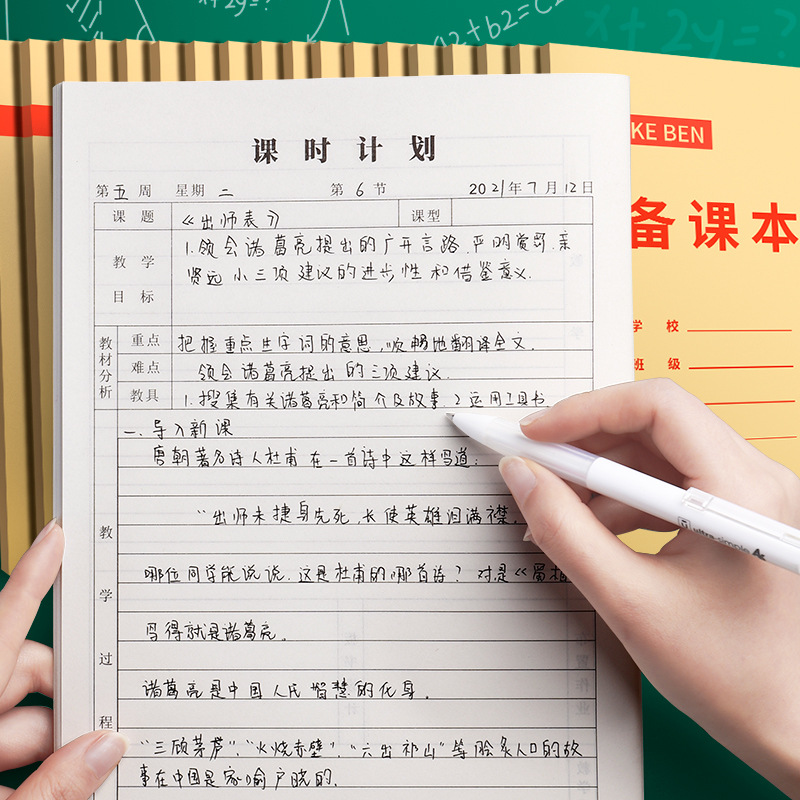 x+2y=?
a2+b2=C2
x+2y=?
KE BEN
备课本
学 校
班 级
课 时 计 划
第 五 周 星期 二 第 6 节 2021年7月12日
课 题 《出师表》 课型
教 学 目 标
1.领会诸葛亮提出的广开言路、严明赏罚、亲
贤远小三项建议的进步性和借鉴意义.
教材分析
重点 把握重点生字词的意思,顺畅地翻译全文.
难点 领会诸葛亮提出的三项建议.
教具 1.搜集有关诸葛亮和简介及故事.2.运用工具书
教 学 过 程
一、导入新课
唐朝著名诗人杜甫在一首诗中这样写道:
“出师未捷身先死,长使英雄泪满襟.
哪位同学能说说.这是杜甫的哪首诗? 对是《蜀相
写得就是诸葛亮。
诸葛亮是中国人民智慧的化身.
“三顾茅庐”、“火烧赤壁”.“六出祁山”等脍炙人口的故
事在中国是家喻户晓的.